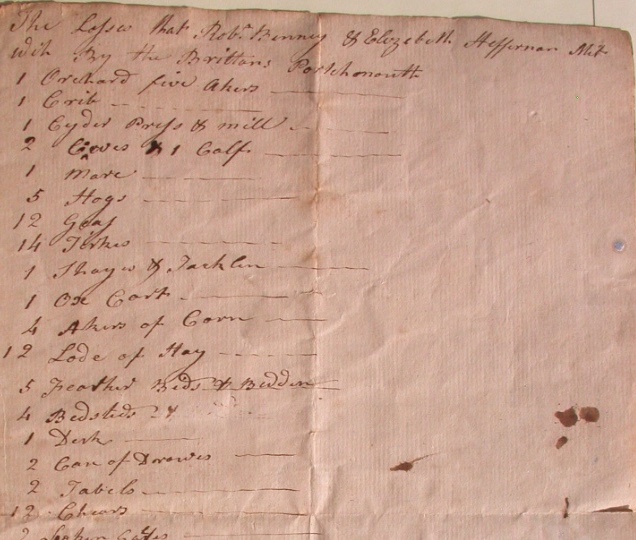 The Losses that Robt. Benney & Elizebeth Heffernan Met
with By the Brittons Portchmouth
1 Orchard five Akers
1 Crib
1 Cyder Press & mill
2 Cowes & 1 Calf
1 Mare
5 Hogs
12 Geas
14 Terkes
1 Shayes & Tacklen
1 Oxe Cart
4 Akers of Corn
12 Lode of Hay
5 Feather Beds & Bedden
4 Bedsteds &
1 Desk
2 Cas of Drowes
2 Tabels
12 Chears